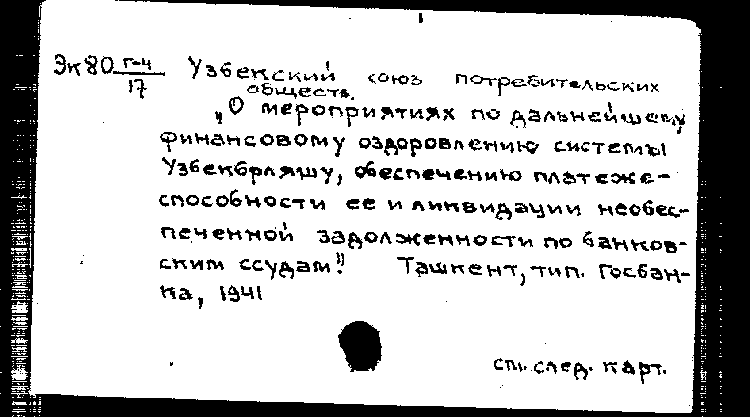 Эк80 Г-4/17 Узбекский союз потребительских
обществ.
„О мероприятиях по дальнейшему
финансовому оздоровлению системы
Узбекбрляшу, обеспечению платеже-
способности ее и ликвидации необес-
печенной задолженности по банков-
ским ссудам". Ташкент, тип. Госбан-
ка, 1941
см. след. карт.